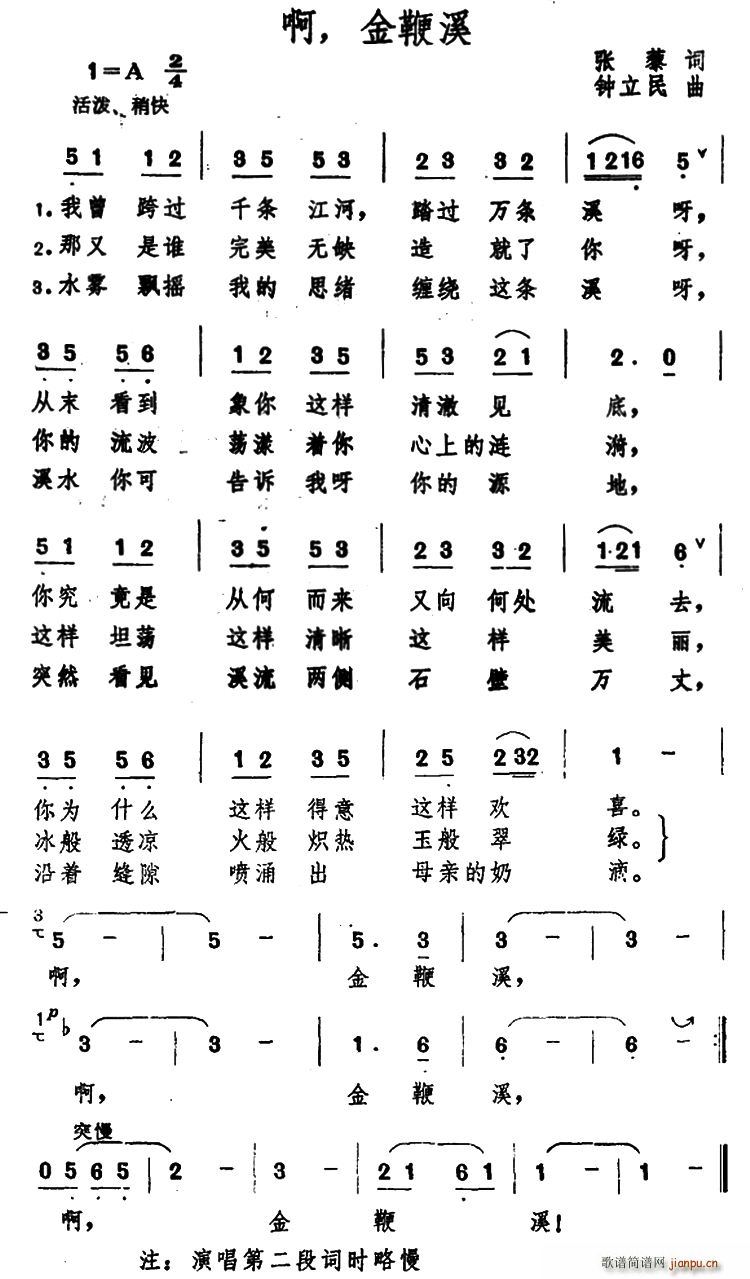 啊，金鞭溪
1=A 2/4
张藜 词
钟立民 曲
活泼、稍快
5 1 1 2 | 3 5 5 3 | 2 3 3 2 | 1 2 1 6 5 ∨
1.我曾 跨过 千条 江河， 踏过 万条 溪 呀，
2.那又 是谁 完美 无缺 造 就了 你 呀，
3.水雾 飘摇 我的 思绪 缠绕 这条 溪 呀，
3 5 5 6 | 1 2 3 5 | 5 3 2 1 | 2. 0
从末 看到 象你 这样 清澈 见 底，
你的 流波 荡漾 着你 心上的 涟 漪，
溪水 你可 告诉 我呀 你的 源 地，
5 1 1 2 | 3 5 5 3 | 2 3 3·2 | 1·21 6 ∨
你究 竟是 从何 而来 又向 何处 流 去，
这样 坦荡 这样 清晰 这 样 美 丽，
突然 看见 溪流 两侧 石 壁 万 丈，
3 5 5 6 | 1 2 3 5 | 2 5 2 32 | 1 －
你为 什么 这样 得意 这样 欢 喜。
冰般 透凉 火般 炽热 玉般 翠 绿。
沿着 缝隙 喷涌 出 母亲的奶 滴。
3 5 － | 5 － | 5. 3 | 3 － | 3 －
啊， 金 鞭 溪，
1 p ♭3 － | 3 － | 1. 6 | 6 － | 6 － :‖
啊， 金 鞭 溪，
突慢
0 5 6 5 | 2 － | 3 － | 2 1 6 1 | 1 － | 1 － ‖
啊， 金 鞭 溪！
注：演唱第二段词时略慢
歌谱简谱网
jianpu.cn